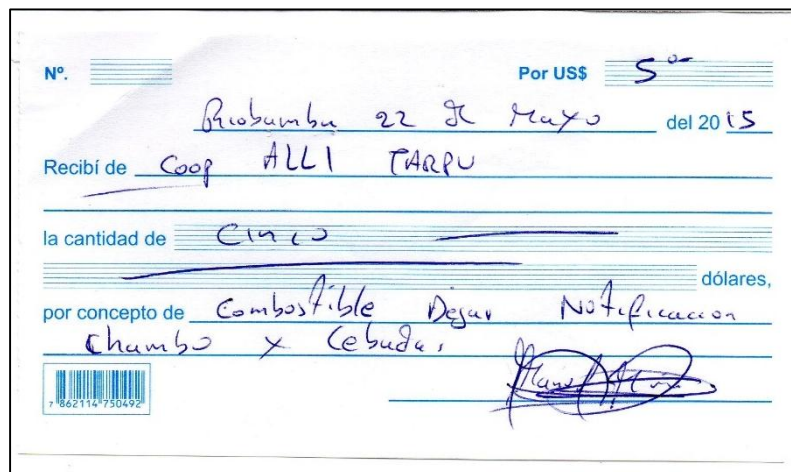 Nº. Por US$ 5 00
Riobamba 22 de Mayo del 2015
Recibí de Coop ALLI TARPU
la cantidad de Cinco
dólares,
por concepto de Combostible Dejar Notificacion
Chambo y Cebadas
7 862114 750492